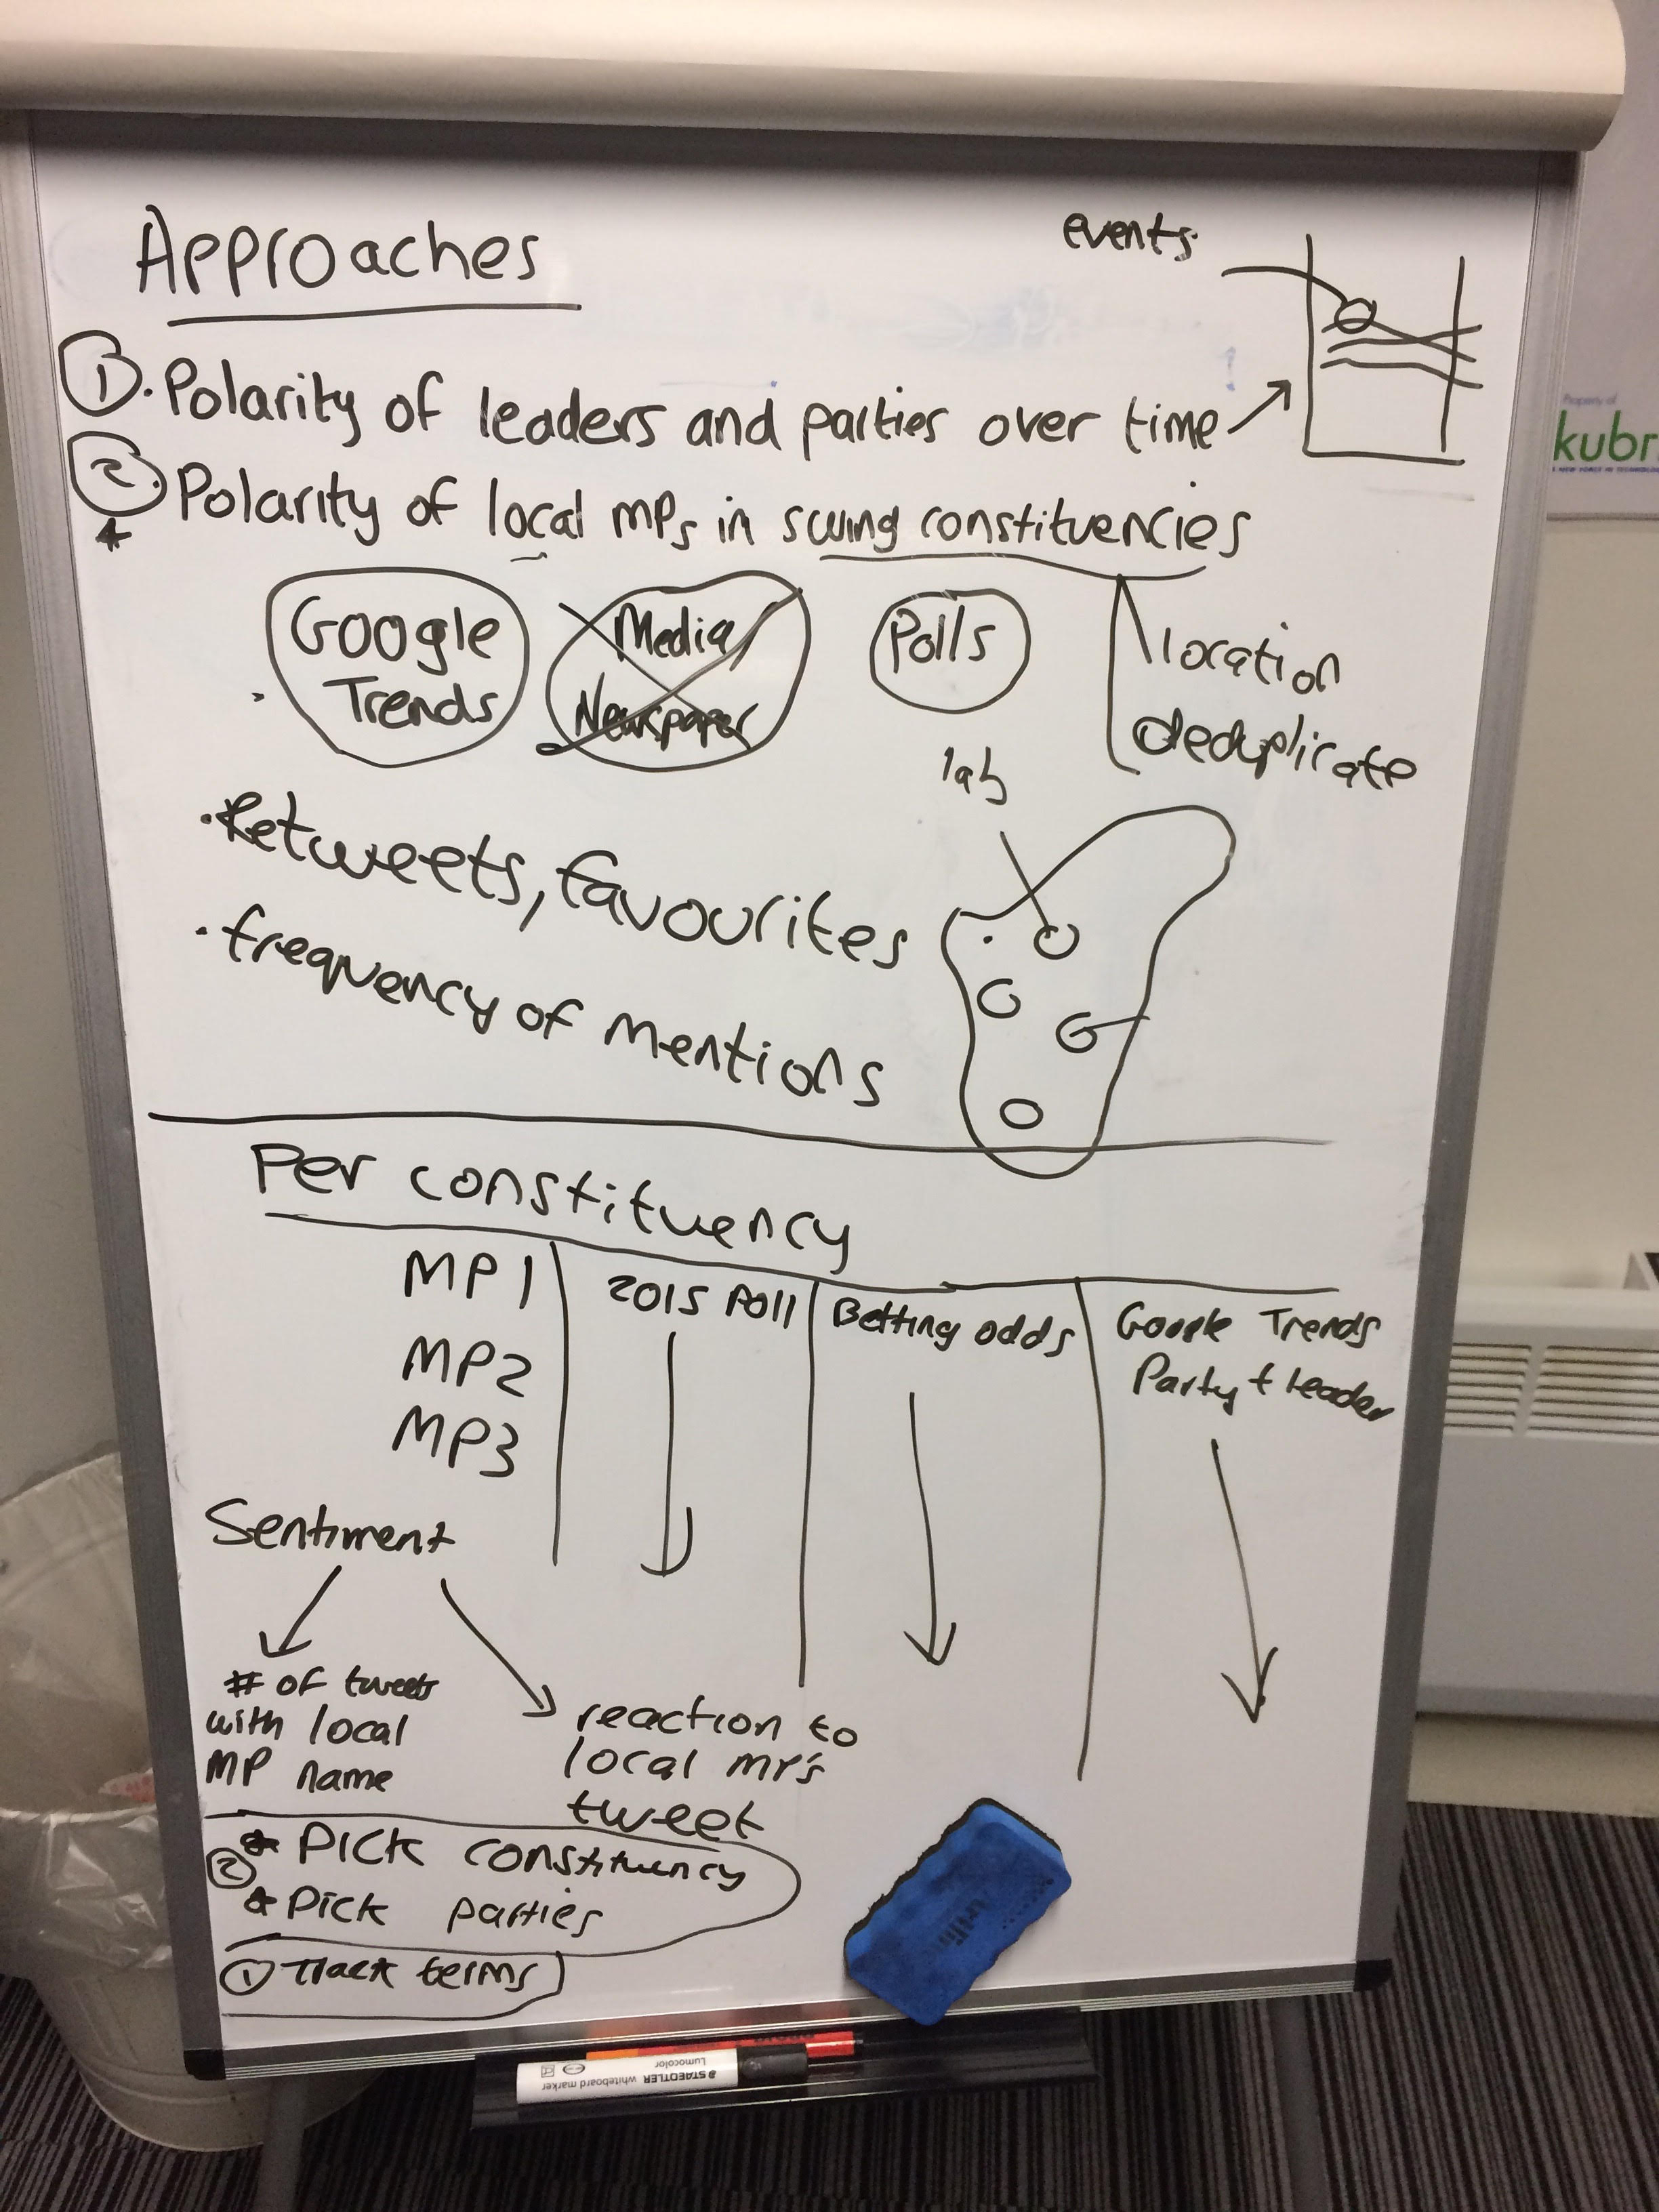 Approaches
events
① Polarity of leaders and parties over time
② Polarity of local MPs in swing constituencies
Google
Trends
Media
Newspaper
Polls
location
deduplicate
lab
· Retweets, favourites
· frequency of mentions
Per constituency
MP1
MP2
MP3
2015 Poll
Betting odds
Google Trends
Party + leader
Sentiment
# of tweets
with local
MP name
reaction to
local MP's
tweet
② * Pick constituency
* Pick parties
① Track terms
Property of
kubr
STAEDTLER whiteboard marker
Lumocolor